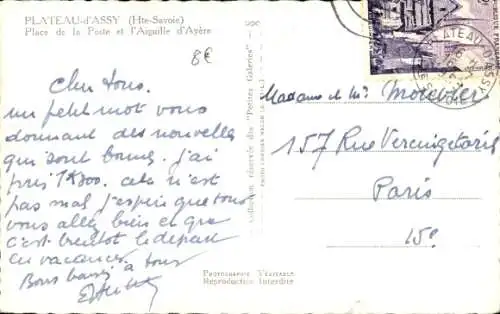 PLATEAU-d'ASSY (Hte-Savoie)
Place de la Poste et l'Aiguille d'Ayère
8€
Cher tous.
un petit mot vous
donnant des nouvelles
qui sont bonnes. j'ai
pris 1K800. cela n'est
pas mal j'espère que tous
vous allez bien et que
c'est bientot le depart
en vacances.
Bons baisers à tous
Collection réservée des "Petites Galeries"
Madame et Mr
157 Rue Vercingetorix
Paris
15e
PLATEAU-D'ASSY
Photographie Véritable
Reproduction Interdite